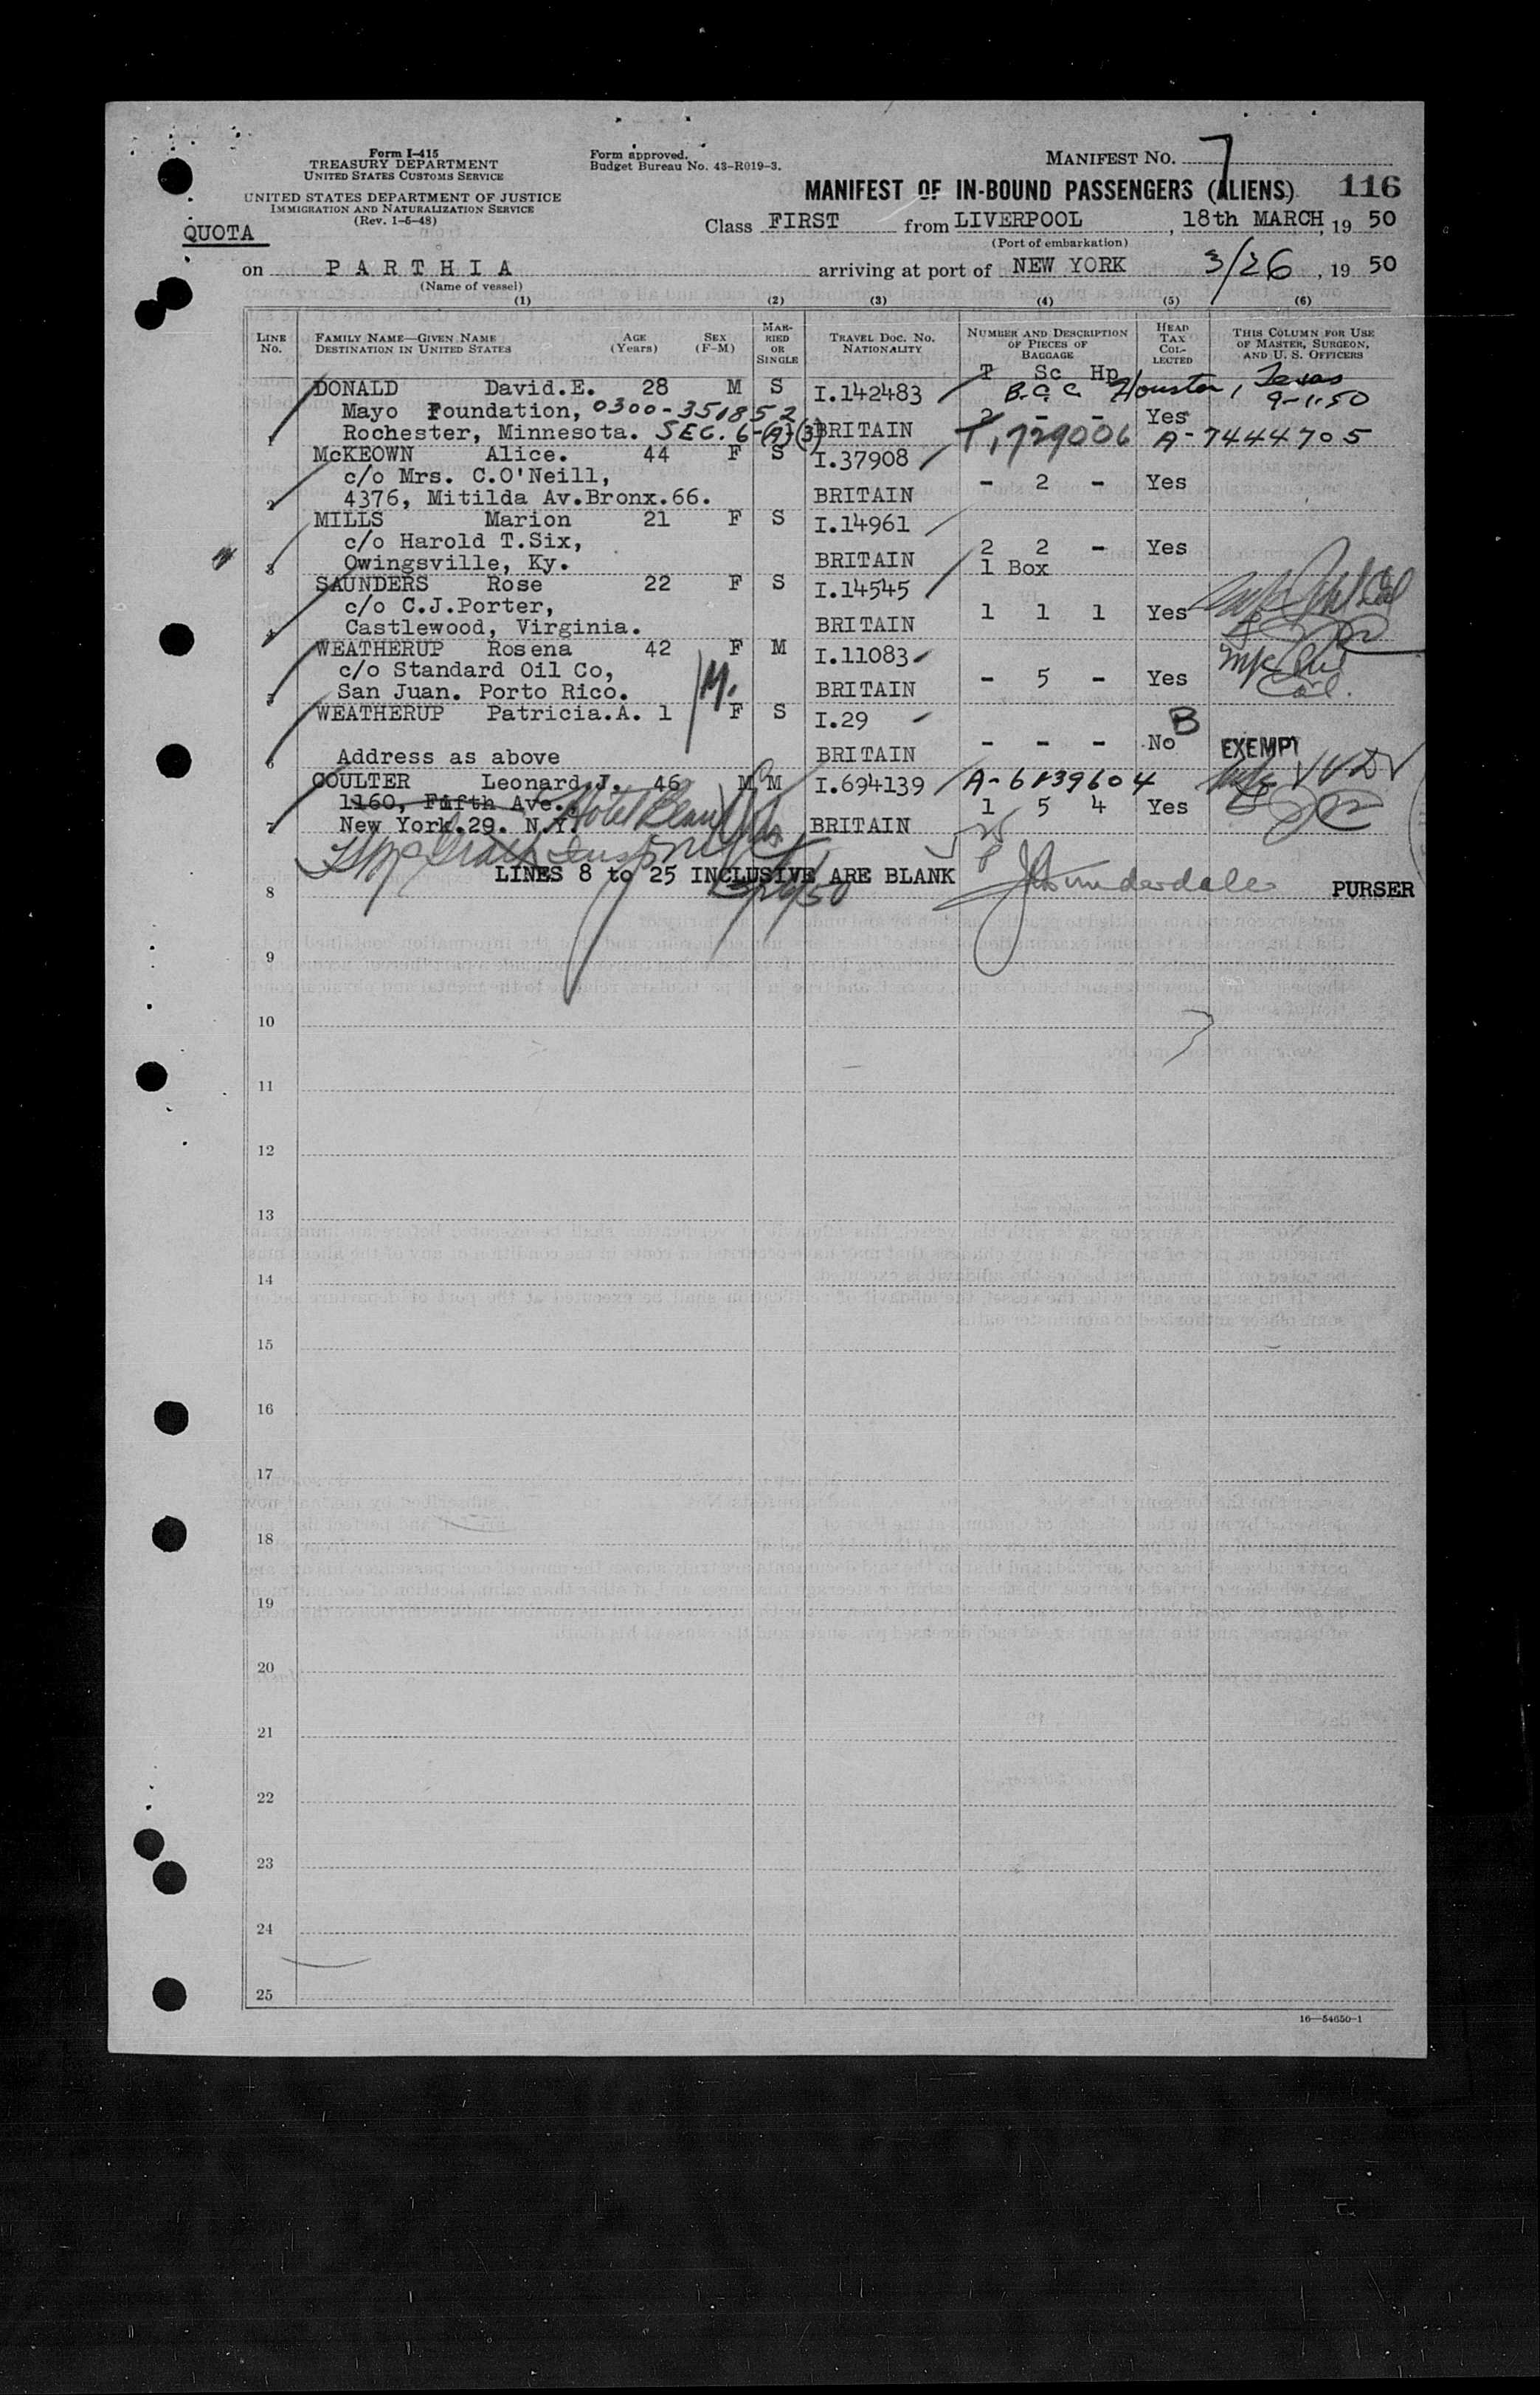 Form I-415
TREASURY DEPARTMENT
UNITED STATES CUSTOMS SERVICE
UNITED STATES DEPARTMENT OF JUSTICE
IMMIGRATION AND NATURALIZATION SERVICE
(Rev. 1-5-48)
Form approved.
Budget Bureau No. 43-R019-3.
MANIFEST NO. 7
MANIFEST OF IN-BOUND PASSENGERS (ALIENS) 116
QUOTA
Class FIRST from LIVERPOOL, 18th MARCH, 19 50
(Port of embarkation)
on PARTHIA arriving at port of NEW YORK 3/26, 19 50
(Name of vessel)
(1) (2) (3) (4) (5) (6)
LINE No. FAMILY NAME—GIVEN NAME DESTINATION IN UNITED STATES AGE (Years) SEX (F-M) MARRIED OR SINGLE TRAVEL DOC. NO. NATIONALITY NUMBER AND DESCRIPTION OF PIECES OF BAGGAGE HEAD TAX COLLECTED THIS COLUMN FOR USE OF MASTER, SURGEON, AND U. S. OFFICERS
T Sc Hp
1 DONALD David.E. 28 M S I.142483 B.C.C. Houston, Texas
9-1-50
Mayo Foundation, 0300-351852 2 - - Yes
Rochester, Minnesota. SEC. 6-(A)(3) BRITAIN T1,729006 A-7444705
2 McKEOWN Alice. 44 F S I.37908
c/o Mrs. C.O'Neill, - 2 - Yes
4376, Mitilda Av.Bronx.66. BRITAIN
3 MILLS Marion 21 F S I.14961
c/o Harold T.Six, 2 2 - Yes
Owingsville, Ky. BRITAIN 1 Box
4 SAUNDERS Rose 22 F S I.14545
c/o C.J.Porter, 1 1 1 Yes
Castlewood, Virginia. BRITAIN
5 WEATHERUP Rosena 42 F M I.11083
c/o Standard Oil Co, - 5 - Yes
San Juan. Porto Rico. BRITAIN
6 WEATHERUP Patricia.A. 1 F S I.29 B
- - - No EXEMPT
Address as above BRITAIN
7 COULTER Leonard.J. 46 M M I.694139 A-6139604
1160, Fifth Ave. Hotel 1 5 4 Yes
New York.29. N.Y. BRITAIN
LINES 8 to 25 INCLUSIVE ARE BLANK PURSER
3/26/50
8
9
10
11
12
13
14
15
16
17
18
19
20
21
22
23
24
25
16—54650-1